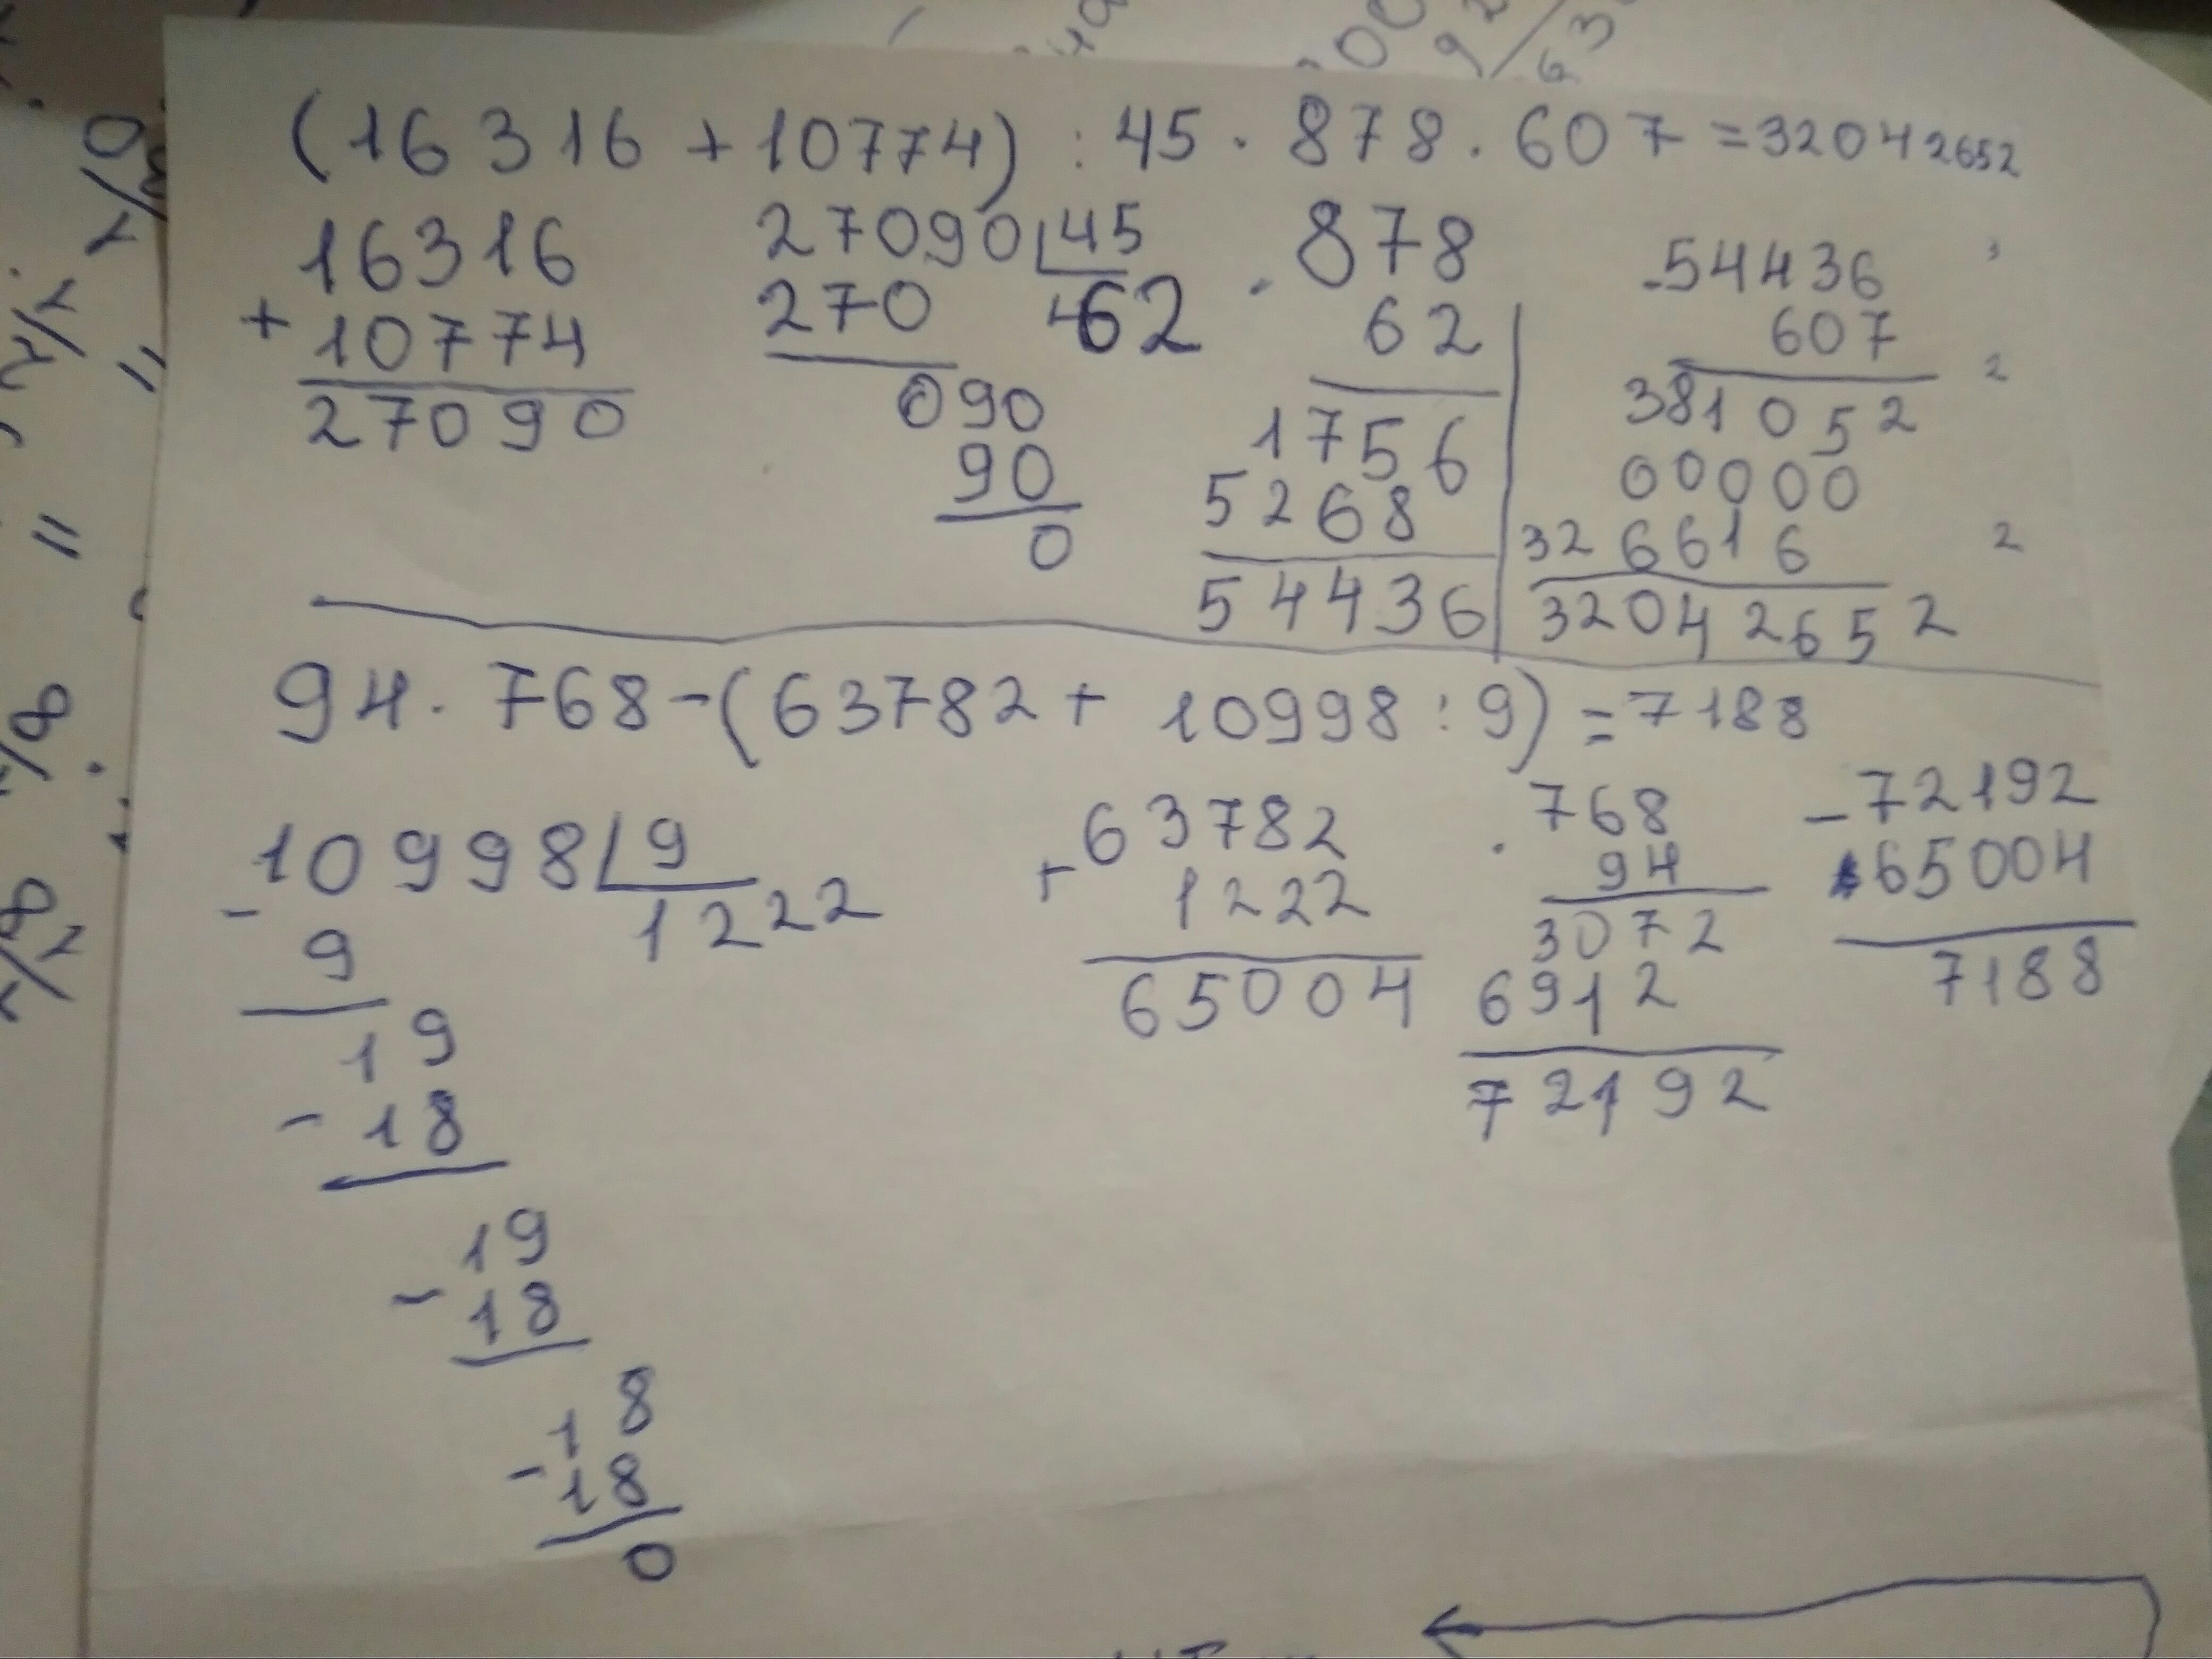 (16316 + 10774) : 45 · 878 · 607 = 32042652
16316
+ 10774
27090
27090 45
270 62
090
90
0
· 878
62
1756
5268
54436
· 54436
607
381052
00000
326616
32042652
2
2
94 · 768 - (63782 + 10998 : 9) = 7188
10998 9
- 9 1222
19
- 18
19
- 18
18
- 18
0
63782
+ 1222
65004
· 768
94
3072
6912
72192
- 72192
65004
7188